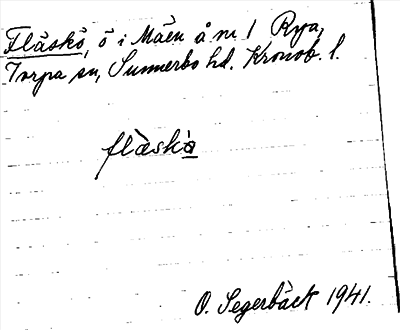 Fläskö, ö i Måen å nr 1 Rya,
Torpa sn, Sunnerbo hd. Kronob. l.
flàskö
O. Segerbäck 1941.